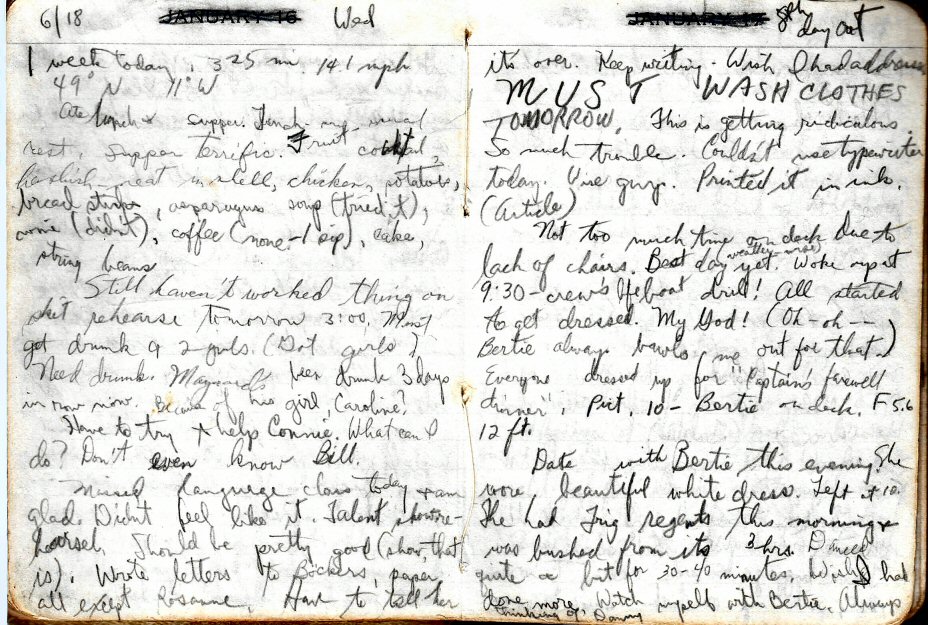 6/18 JANUARY 16 Wed
1 week today. 325 mi. 14.1 mph
49° N 11° W
Ate lunch & supper. Lunch my usual
rest, supper terrific. Fruit cocktail,
meat in shell, chicken, potatoes,
bread strips, asparagus soup (tried it),
wine (didn't), coffee (none-1 sip), cake,
string beans
Still haven't worked thing on
skit rehearse tomorrow 3:00. Must
get drunk & 2 girls. (Got girls)
Need drunk. Maynard's been drunk 3 days
in row now. Because of his girl, Caroline?
Have to try & help Connie. What can I
do? Don't even know Bill.
Missed language class today & am
glad. Didn't feel like it. Talent show re-
hearsal. Should be pretty good (show, that
is). Wrote letters to Bockers, paper
all except Rosanne. Have to tell her
JANUARY 17 8th day out
it's over. Keep writing. Wish I had address
MUST WASH CLOTHES
TOMORROW. This is getting ridiculous.
So much trouble. Couldn't use typewriter
today. Printed it in ink.
(Article)
Not too much time on deck due to
lack of chairs. Best day yet. (weather-wise) Woke up at
9:30-crew's lifeboat drill! All started
to get dressed. My God! (Oh-oh--
Bertie always bawls me out for that.)
Everyone dressed up for "Captain's farewell
dinner". Pict. 10- Bertie on deck. F 5.6
12 ft.
Date with Bertie this evening. She
wore beautiful white dress. Left at 10.
She had Trig regents this morning &
was bushed from its 3 hrs. Danced
quite a bit for 30-40 minutes. Wish I had
done more. Watch myself with Bertie. Always
thinking of Danny